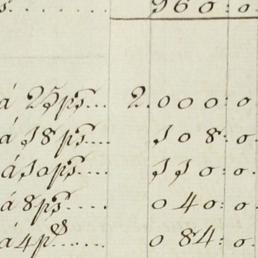 s..... 960:0
á 25 ps.... 2.000:0
á 18 ps.... 108:0
á 10 ps.... 110:0
á 8 ps.... 040:0
á 4 ps..... 084:0